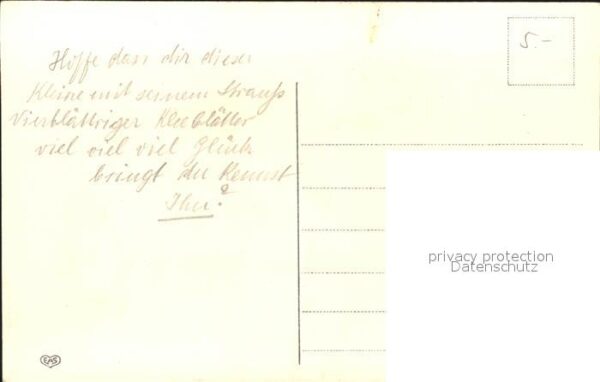 Hoffe dass dir dieser
Kleine mit seinem Strauss
Vierblättriger Kleeblätter
viel viel viel Glück
bringt du Kennst
Ihn?
5.-
privacy protection
Datenschutz
EAS